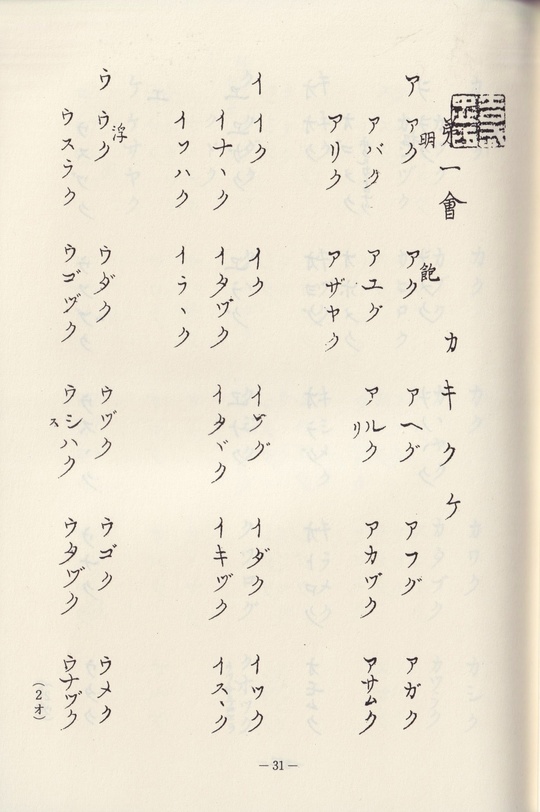 第一會 カキクケ
ア アク明 アク飽 アヘグ アフグ アガク
アバク アユグ アルクリ アカヅク アサムク
アリク アザヤク
イ イク イク イヾグ イダク イツク
イナヽク イタヅク イタヾク イキヅク イスヽク
イツハク イラヽク
ウ ウク浮 ウダク ウヅク ウゴク ウメク
ウスラク ウゴヅク ウシハクス ウタヅク ウナヅク
(2オ)
— 31 —